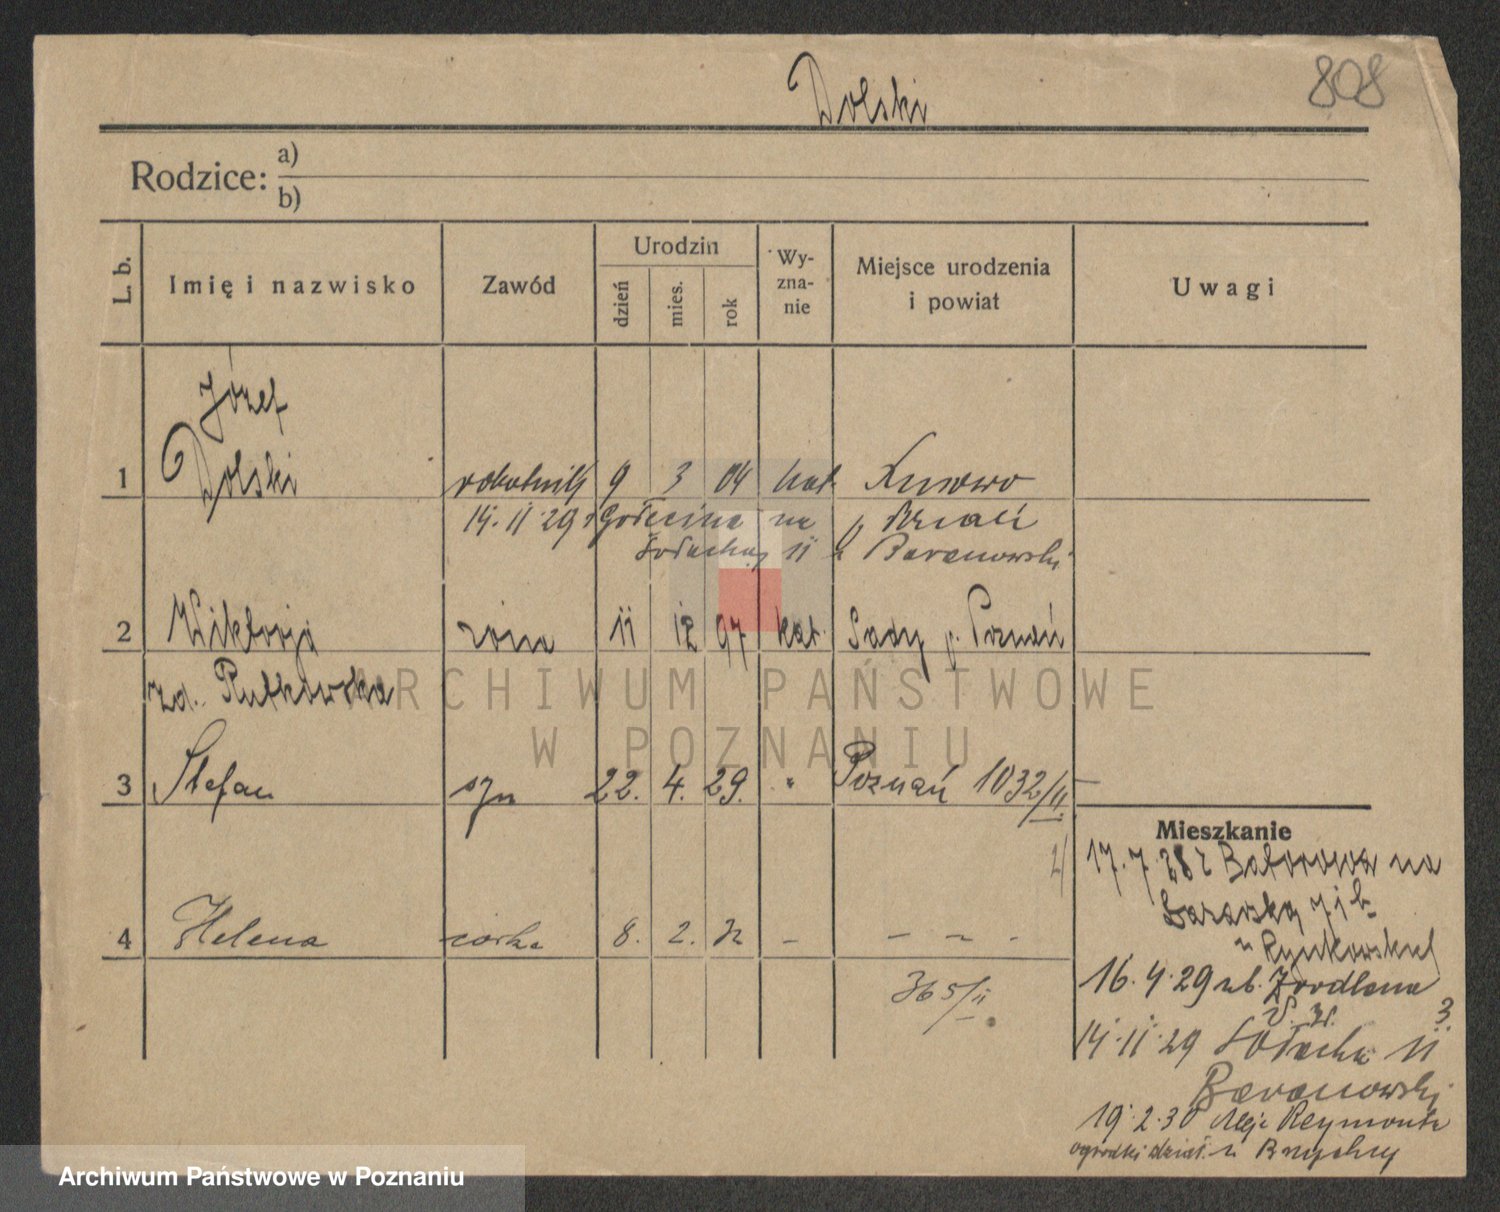 Dolski
808
Rodzice: a)
b)
L. b.
Imię i nazwisko
Zawód
Urodzin
dzień
mies.
rok
Wy-
zna-
nie
Miejsce urodzenia
i powiat
Uwagi
Józef
1 Dolski robotnik 9 3 04 kat.
14.11.29 na
11 u Baranowski
2 Wiktorja żona 11 12 97 kat. Sady p. Poznań
zd. Rutkowska
ARCHIWUM PAŃSTWOWE
W POZNANIU
3 Stefan syn 22. 4. 29. " Poznań 1032/II.
Mieszkanie
17.7.28 z Batorowa na
Łazarską 7 j b.
u Rynkowskiej
4 Helena córka 8. 2. 32 - - - -
365/II
16.4.29 3.
14.11.29 Sołacka 11
Baranowski
19.2.30 Aleje Reymonta
ogródki dział. u Brzychcy
Archiwum Państwowe w Poznaniu